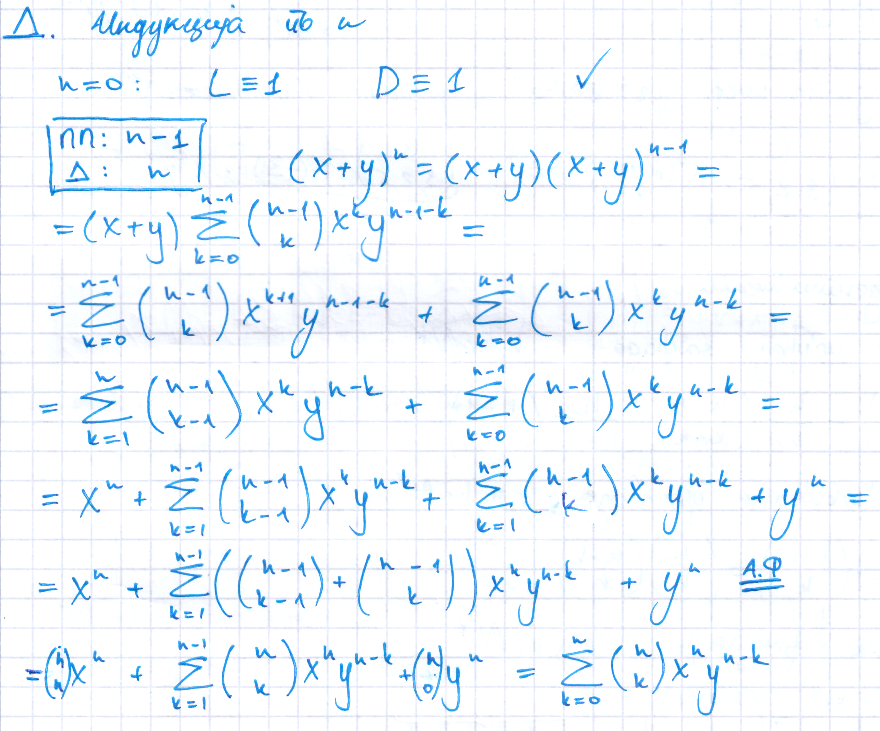 Δ. Индукција по n
n=0: L≡1 D≡1 ✓
ПП: n-1
Δ: n
(x+y)^n = (x+y)(x+y)^{n-1} =
= (x+y) \sum_{k=0}^{n-1} \binom{n-1}{k} x^k y^{n-1-k} =
= \sum_{k=0}^{n-1} \binom{n-1}{k} x^{k+1} y^{n-1-k} + \sum_{k=0}^{n-1} \binom{n-1}{k} x^k y^{n-k} =
= \sum_{k=1}^{n} \binom{n-1}{k-1} x^k y^{n-k} + \sum_{k=0}^{n-1} \binom{n-1}{k} x^k y^{n-k} =
= x^n + \sum_{k=1}^{n-1} \binom{n-1}{k-1} x^k y^{n-k} + \sum_{k=1}^{n-1} \binom{n-1}{k} x^k y^{n-k} + y^n =
= x^n + \sum_{k=1}^{n-1} \left( \binom{n-1}{k-1} + \binom{n-1}{k} \right) x^k y^{n-k} + y^n А.Ф
= \binom{n}{n} x^n + \sum_{k=1}^{n-1} \binom{n}{k} x^k y^{n-k} + \binom{n}{0} y^n = \sum_{k=0}^{n} \binom{n}{k} x^k y^{n-k}